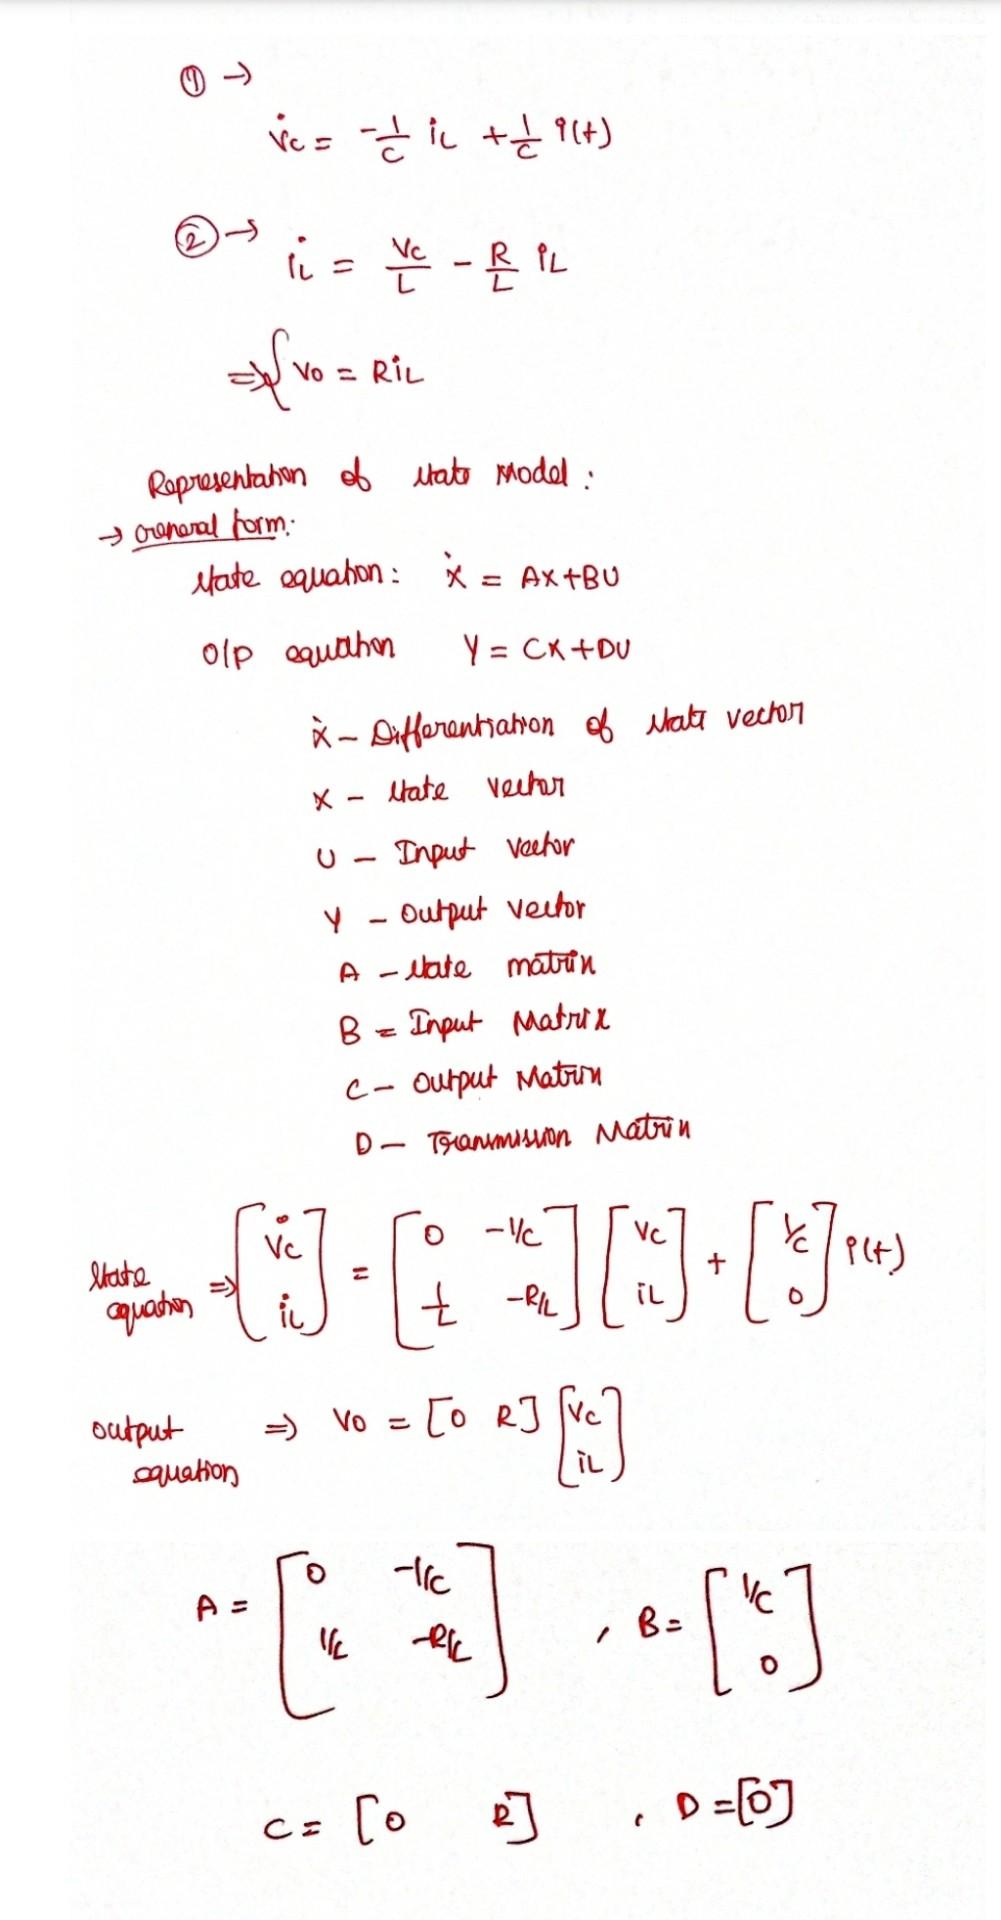 ① →
v̇c = -1/C iL + 1/C i(t)
② → i̇L = Vc/L - R/L iL
⇒ { Vo = RiL
Representation of state Model :
→ General form:
state equation : ẋ = AX+BU
O/P equation Y = CX+DU
ẋ – Differentiation of state vector
X – state vector
U – Input vector
Y – Output vector
A – state matrix
B = Input Matrix
C – Output Matrix
D – Transmission Matrix
state equation ⇒ [v̇c i̇L] = [0 -1/C 1/L -R/L] [Vc iL] + [1/C 0] i(t)
output equation ⇒ Vo = [0 R] [Vc iL]
A = [0 -1/C 1/L -R/L] , B = [1/C 0]
C = [0 R] , D = [0]